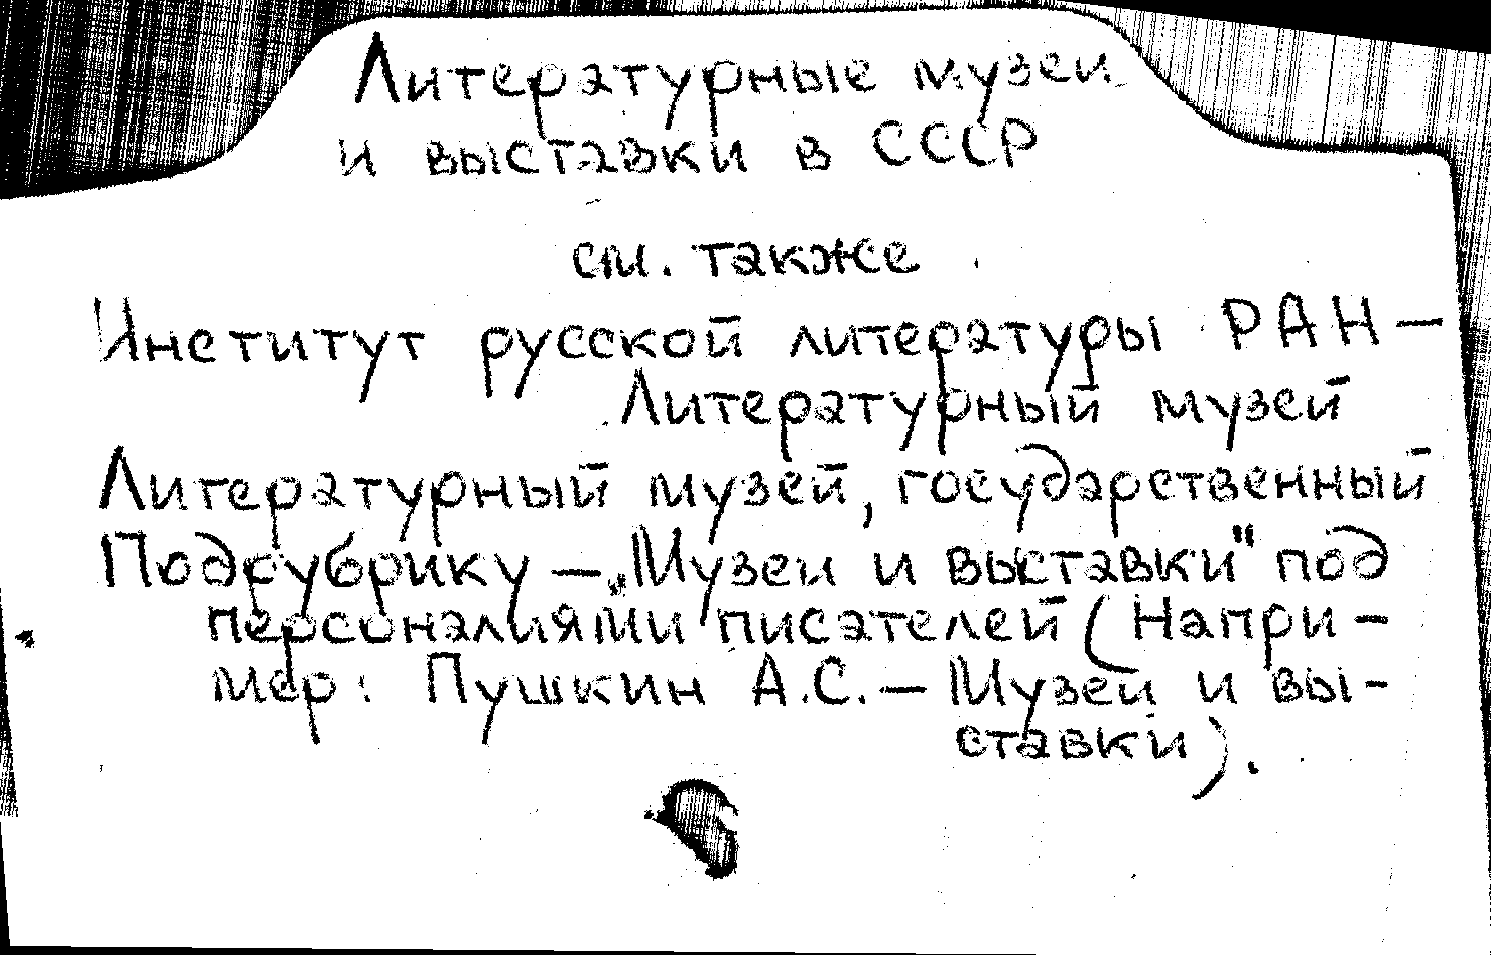 Литературные музеи
и выставки в СССР
см. также
Институт русской литературы РАН –
Литературный музей
Литературный музей, государственный
Подрубрику – „Музеи и выставки" под
персоналиями писателей (Напри-
мер: Пушкин А.С. – Музеи и вы-
ставки).